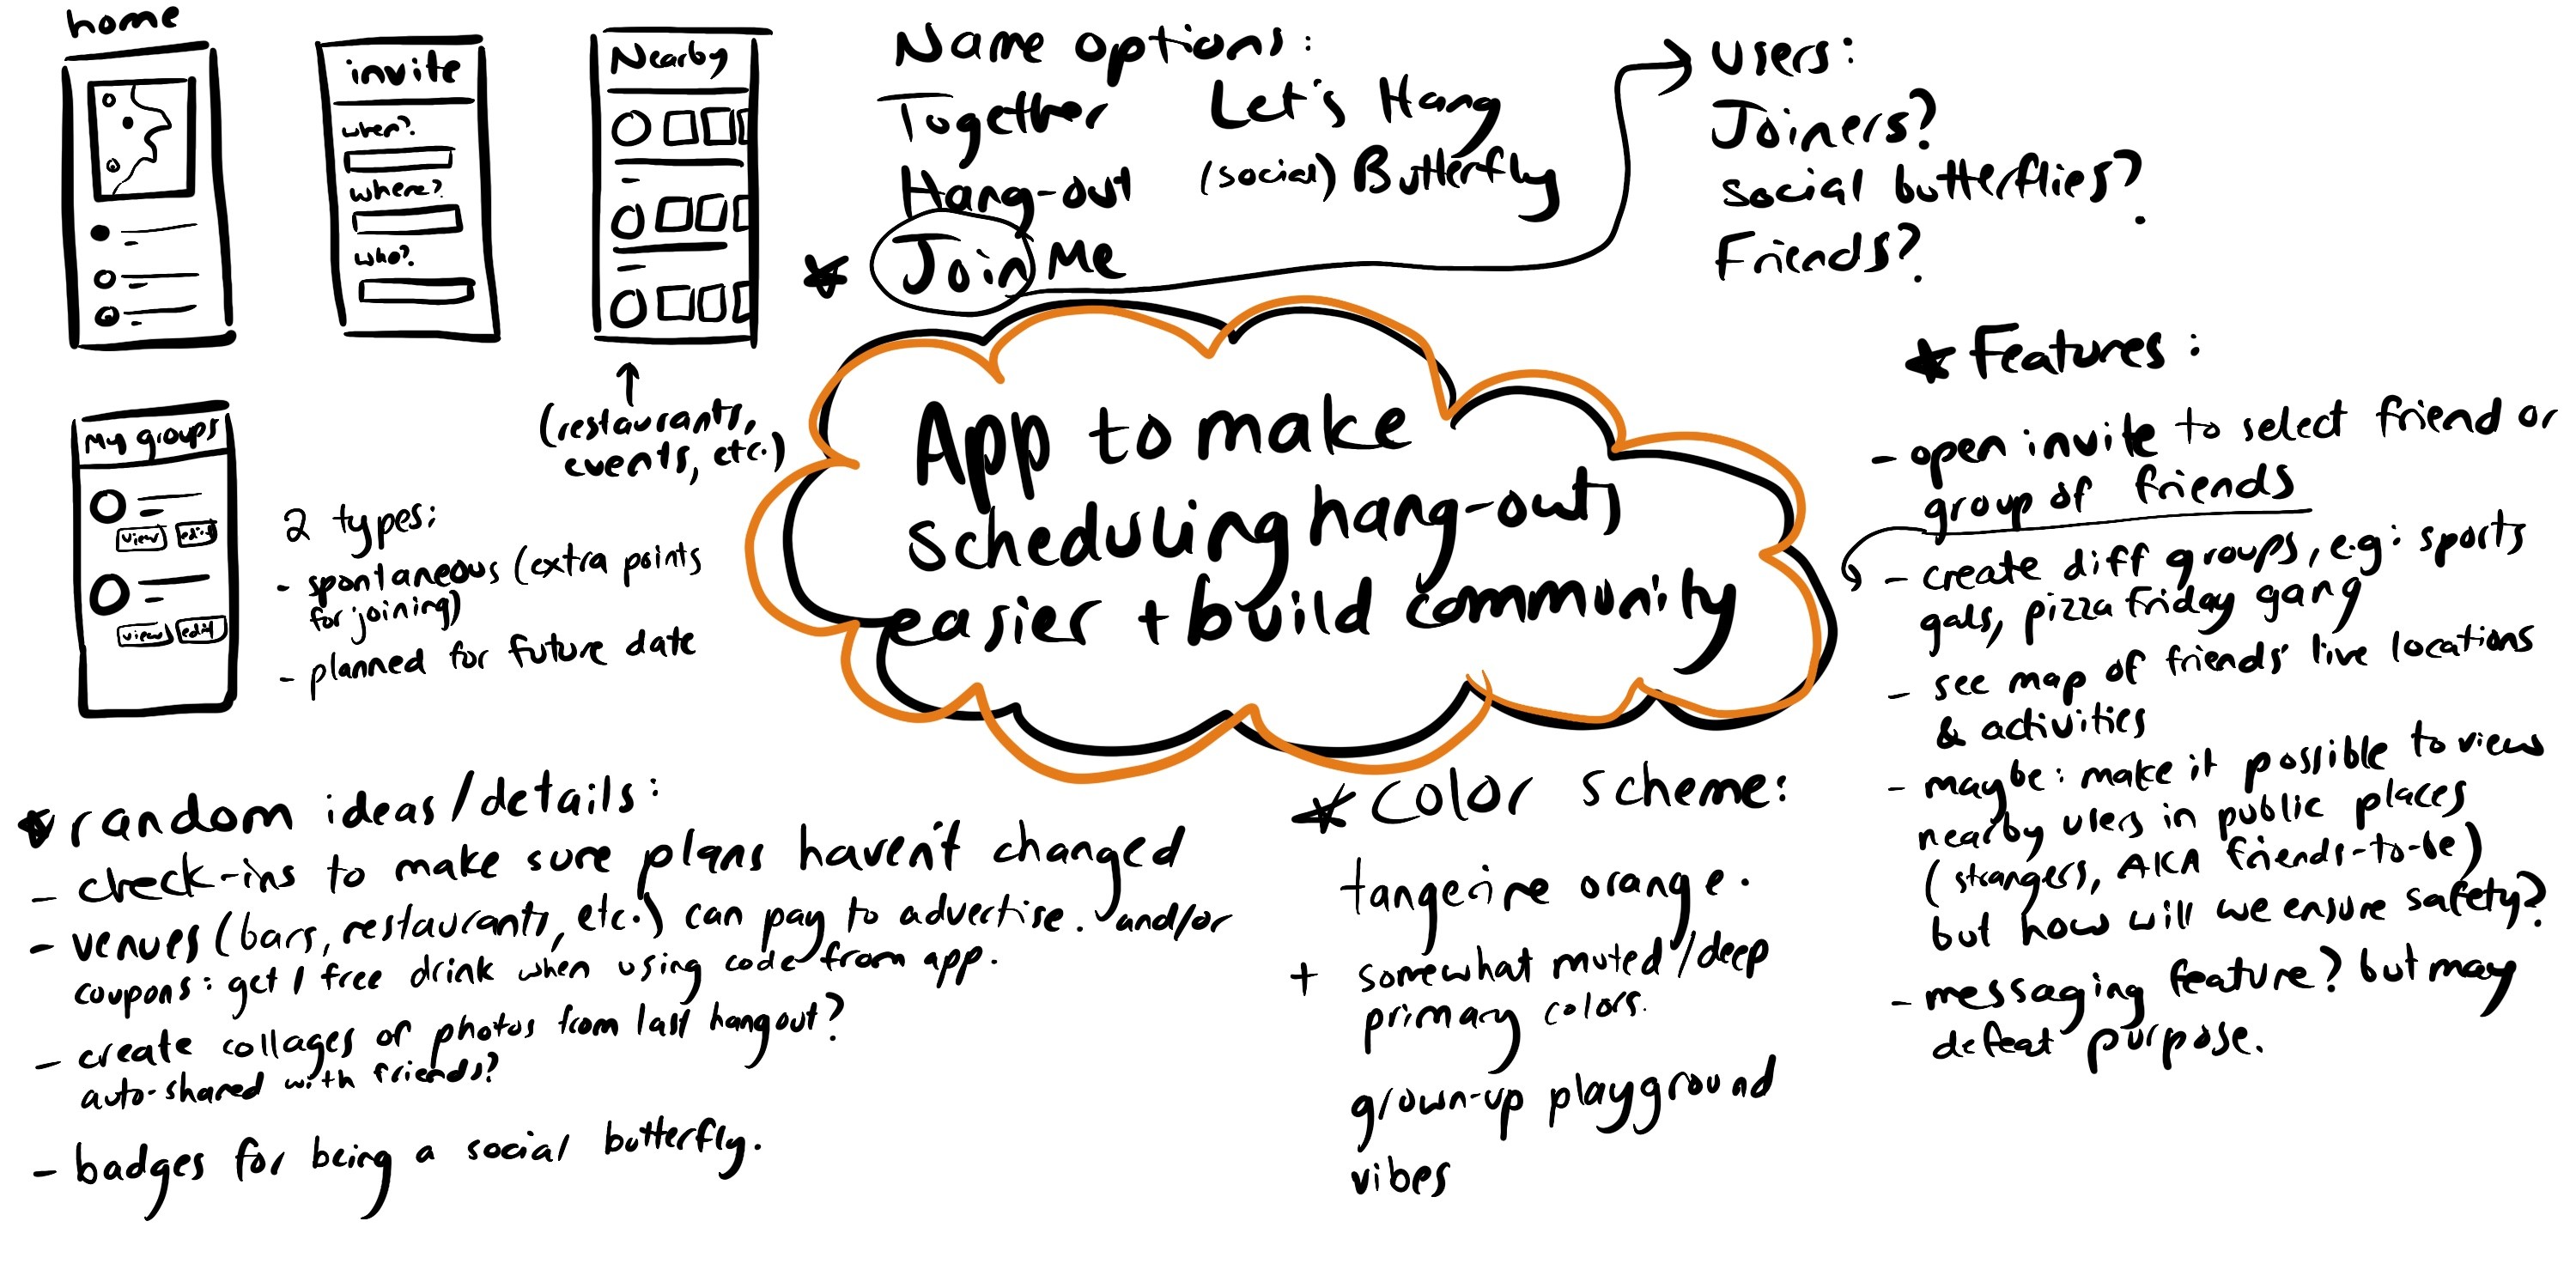 home
invite
when?
where?
who?
Nearby
(restaurants,
events, etc.)
My groups
view edit
view edit
2 types:
- spontaneous (extra points
for joining)
- planned for future date
Name options:
Together
Let's Hang
Hang-out
(social) Butterfly
Join Me
Users:
Joiners?
social butterflies?
Friends?
App to make
scheduling hang-outs
easier + build community
Features:
- open invite to select friend or
group of friends
- create diff groups, e.g: sports
gals, pizza Friday gang
- see map of friends' live locations
& activities
- maybe: make it possible to view
nearby users in public places
(strangers, AKA friends-to-be)
but how will we ensure safety?
- messaging feature? but may
defeat purpose.
random ideas/details:
- check-ins to make sure plans haven't changed
- venues (bars, restaurants, etc.) can pay to advertise. and/or
coupons: get 1 free drink when using code from app.
- create collages of photos from last hangout?
auto-shared with friends?
- badges for being a social butterfly.
color scheme:
tangerine orange.
+ somewhat muted/deep
primary colors.
grown-up playground
vibes